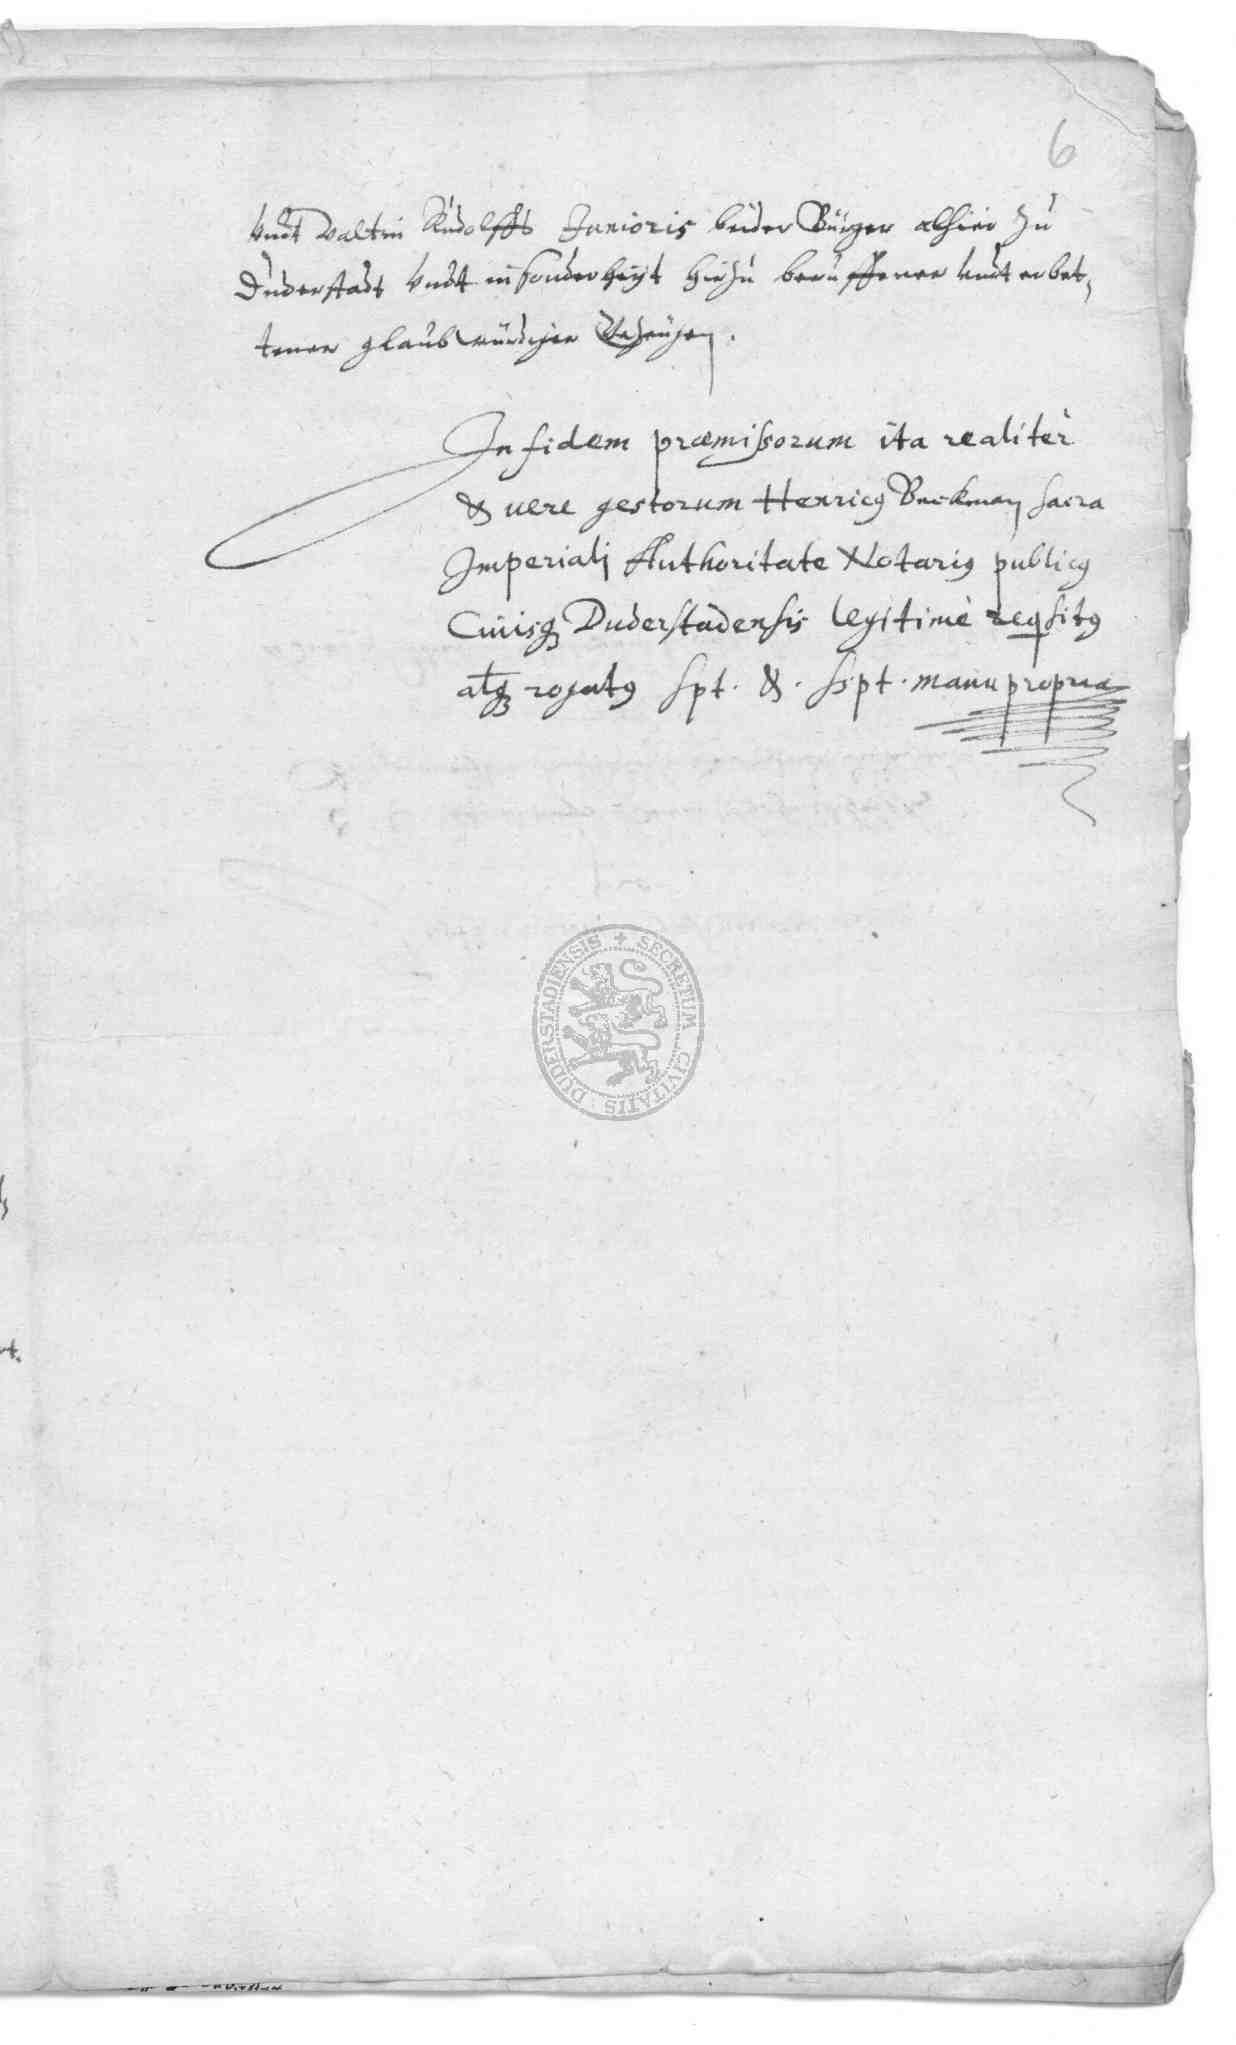 6
Vndt Valtin Rudolffs Junioris beider Bürger alhier zu
Duderstadt Vndt insonderheyt hirzu beruffener vndt erbet,
tener glaubwürdiger Gezeugen.
In fidem præmissorum ita realitèr
& uere gestorum Henricꝰ Beckman sacra
Imperiali Authoritate Notariꝰ publicꝰ
Ciuisqꝫ Duderstadensis legitimè reqsitꝰ
atqꝫ rogatꝰ spt. & . sspt. manu propria
SECRETUM CIVITATIS DUDERSTADIENSIS